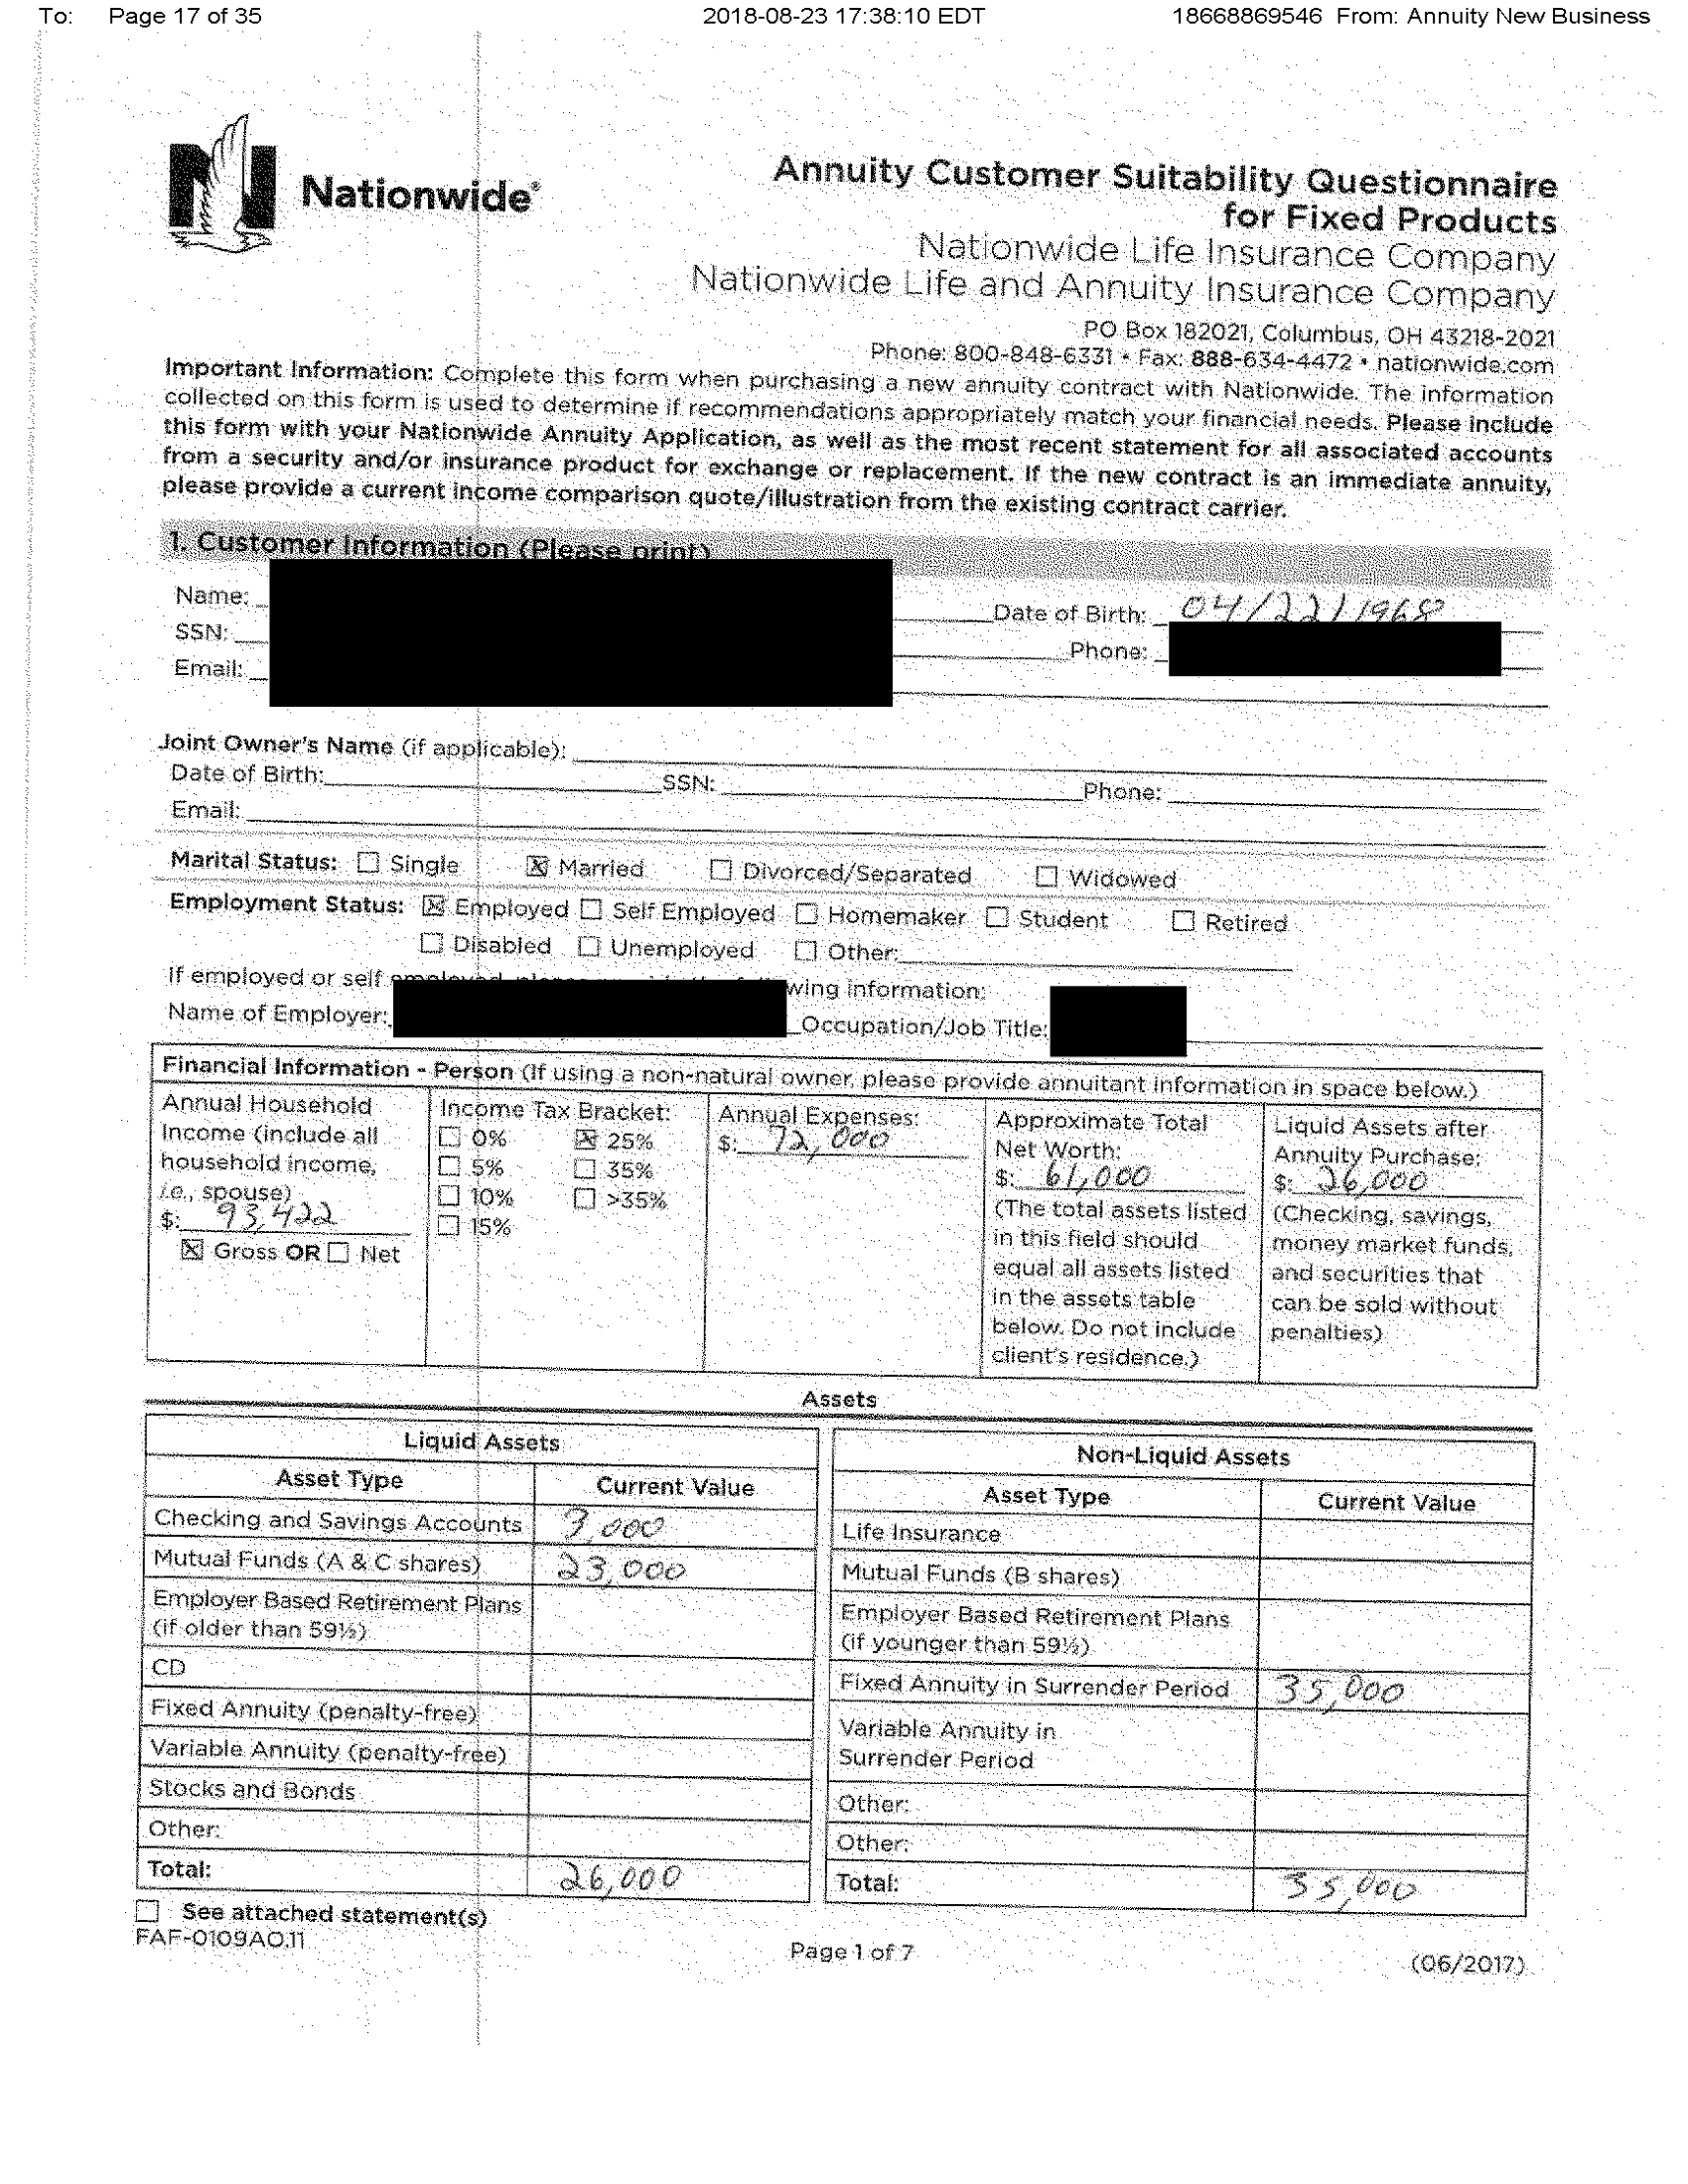 To: Page 17 of 35 2018-08-23 17:38:10 EDT 18668869546 From: Annuity New Business
Nationwide®
Annuity Customer Suitability Questionnaire
for Fixed Products
Nationwide Life Insurance Company
Nationwide Life and Annuity Insurance Company
PO Box 182021, Columbus, OH 43218-2021
Phone: 800-848-6331 • Fax: 888-634-4472 • nationwide.com
Important Information: Complete this form when purchasing a new annuity contract with Nationwide. The information
collected on this form is used to determine if recommendations appropriately match your financial needs. Please include
this form with your Nationwide Annuity Application, as well as the most recent statement for all associated accounts
from a security and/or insurance product for exchange or replacement. If the new contract is an immediate annuity,
please provide a current income comparison quote/illustration from the existing contract carrier.
1. Customer Information (Please print)
Name: Date of Birth: 04/22/1968
SSN: Phone:
Email:
Joint Owner's Name (if applicable):
Date of Birth: SSN: Phone:
Email:
Marital Status: ☐ Single ☒ Married ☐ Divorced/Separated ☐ Widowed
Employment Status: ☒ Employed ☐ Self Employed ☐ Homemaker ☐ Student ☐ Retired
☐ Disabled ☐ Unemployed ☐ Other:
If employed or self wing information:
Name of Employer: Occupation/Job Title:
Financial Information - Person (If using a non-natural owner, please provide annuitant information in space below.)
Annual Household
Income (include all
household income,
i.e., spouse)
$: 93,422
☒ Gross OR ☐ Net
Income Tax Bracket:
☐ 0% ☒ 25%
☐ 5% ☐ 35%
☐ 10% ☐ >35%
☐ 15%
Annual Expenses:
$: 72,000
Approximate Total
Net Worth:
$: 61,000
(The total assets listed
in this field should
equal all assets listed
in the assets table
below. Do not include
client's residence.)
Liquid Assets after
Annuity Purchase:
$: 26,000
(Checking, savings,
money market funds,
and securities that
can be sold without
penalties)
Assets
Liquid Assets
Asset Type Current Value
Checking and Savings Accounts 3,000
Mutual Funds (A & C shares) 23,000
Employer Based Retirement Plans
(if older than 59½)
CD
Fixed Annuity (penalty-free)
Variable Annuity (penalty-free)
Stocks and Bonds
Other:
Total: 26,000
Non-Liquid Assets
Asset Type Current Value
Life Insurance
Mutual Funds (B shares)
Employer Based Retirement Plans
(if younger than 59½)
Fixed Annuity in Surrender Period 35,000
Variable Annuity in
Surrender Period
Other:
Other:
Total: 35,000
☐ See attached statement(s)
FAF-0109AO.11
Page 1 of 7
(06/2017)